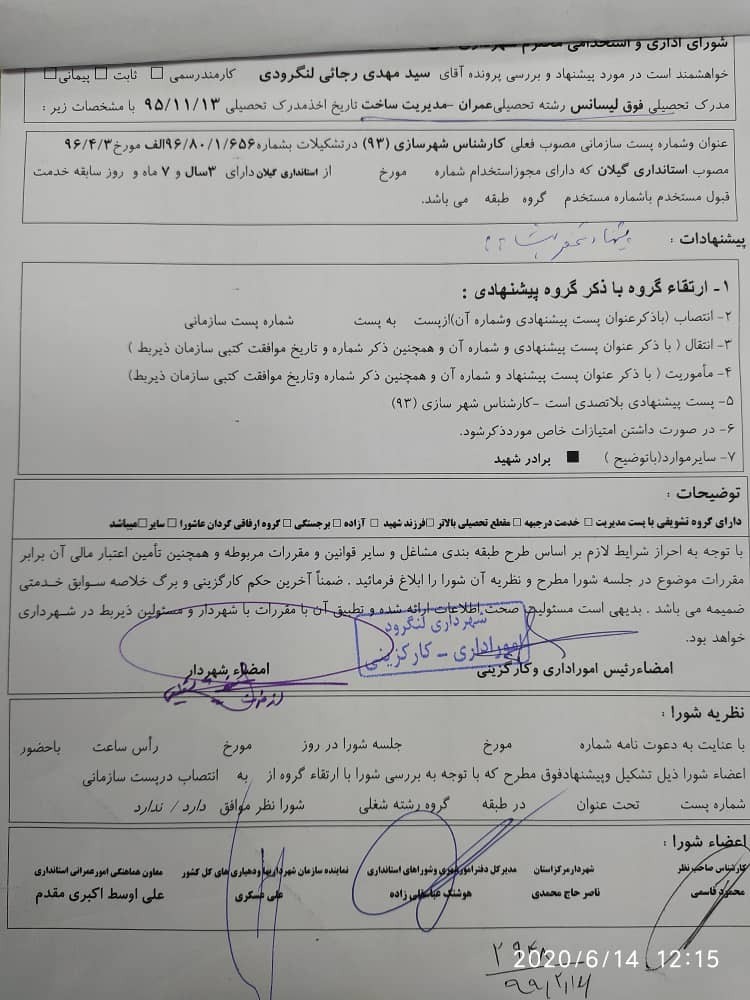 شورای اداری و استخدامی محترم
خواهشمند است در مورد پیشنهاد و بررسی پرونده آقای سید مهدی رجائی لنگرودی کارمندرسمی □ ثابت □ پیمانی □
مدرک تحصیلی فوق لیسانس رشته تحصیلی عمران –مدیریت ساخت تاریخ اخذمدرک تحصیلی ۹۵/۱۱/۱۳ با مشخصات زیر :
عنوان وشماره پست سازمانی مصوب فعلی کارشناس شهرسازی (۹۳) درتشکیلات بشماره ۹۶/۸۰/۱/۶۵۶الف مورخ ۹۶/۴/۳
مصوب استانداری گیلان که دارای مجوزاستخدام شماره مورخ از استانداری گیلان دارای ۳سال و ۷ ماه و روز سابقه خدمت
قبول مستخدم باشماره مستخدم گروه طبقه می باشد.
پیشنهادات :
۱- ارتقاء گروه با ذکر گروه پیشنهادی :
۲- انتصاب (باذکرعنوان پست پیشنهادی وشماره آن)ازپست به پست شماره پست سازمانی
۳- انتقال ( با ذکر عنوان پست پیشنهادی و شماره آن و همچنین ذکر شماره و تاریخ موافقت کتبی سازمان ذیربط )
۴- مأموریت ( با ذکر عنوان پست پیشنهاد و شماره آن و همچنین ذکر شماره وتاریخ موافقت کتبی سازمان ذیربط)
۵- پست پیشنهادی بلاتصدی است –کارشناس شهر سازی (۹۳)
۶- در صورت داشتن امتیازات خاص موردذکرشود.
۷- سایرموارد(باتوضیح ) ■ برادر شهید
توضیحات :
دارای گروه تشویقی با پست مدیریت □ خدمت درجبهه □ مقطع تحصیلی بالاتر □فرزند شهید □ آزاده □ برجستگی □ گروه ارفاقی گردان عاشورا □ سایر □میباشد
با توجه به احراز شرایط لازم بر اساس طرح طبقه بندی مشاغل و سایر قوانین و مقررات مربوطه و همچنین تأمین اعتبار مالی آن برابر
مقررات موضوع در جلسه شورا مطرح و نظریه آن شورا را ابلاغ فرمائید . ضمناً آخرین حکم کارگزینی و برگ خلاصه سوابق خدمتی
ضمیمه می باشد . بدیهی است مسئولیت صحت اطلاعات ارائه شده و تطبیق آن با مقررات با شهردار و مسئولین ذیربط در شهرداری
خواهد بود.
شهرداری لنگرود
اموراداری - کارگزینی
امضاءرئیس اموراداری وکارگزینی امضاء شهردار
نظریه شورا :
با عنایت به دعوت نامه شماره مورخ جلسه شورا در روز مورخ رأس ساعت باحضور
اعضاء شورا ذیل تشکیل وپیشنهادفوق مطرح که با توجه به بررسی شورا با ارتقاء گروه از به انتصاب درپست سازمانی
شماره پست تحت عنوان در طبقه گروه رشته شغلی شورا نظر موافق دارد / ندارد
اعضاء شورا :
کارشناس صاحب نظر شهردارمرکزاستان مدیرکل دفتر امورشهری وشوراهای استانداری نماینده سازمان شهرداریها ودهیاری های کل کشور معاون هماهنگی امورعمرانی استانداری
محمود قاسمی ناصر حاج محمدی هوشنگ عباسقلی زاده علی عسکری علی اوسط اکبری مقدم
2020/6/14 12:15